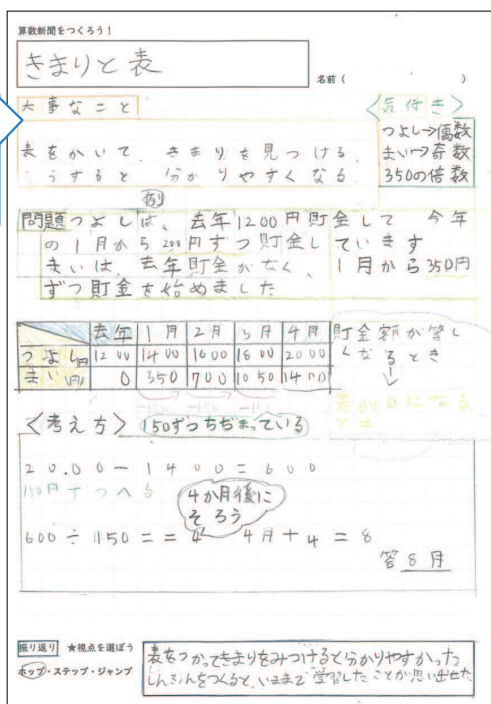 算数新聞をつくろう！
きまりと表
名前（　　　　　）
大事なこと
表をかいて、きまりを見つける。
うすると 分かりやすくなる
<気付き>
つよし→偶数
まい→奇数
350の倍数
例
問題つよしは、去年1200円貯金して 今年
の1月から200円ずつ貯金しています
まいは、去年貯金がなく、1月から350円
ずつ貯金を始めました
去年 1月 2月 3月 4月
つよし(円) 1200 1400 1600 1800 2000
まい(円) 0 350 700 1050 1400
-150 -150 -150
貯金額が等し
くなるとき
↓
差が0になる
とき
<考え方> 150ずつちぢまっている
20.00-1400=600
150円ずつへる
4か月後に
そろう
600÷150==4 4月+4=8
答8月
振り返り ★視点を選ぼう
ホップ・ステップ・ジャンプ
表をつかってきまりをみつけると分かりやすかった
しんぶんをつくると、いままで学習したことが思い出せた